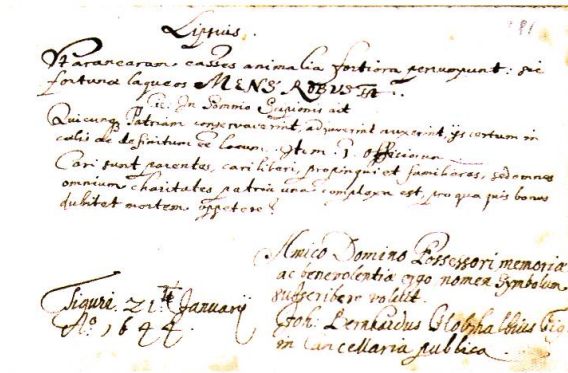 Lipsius.
181
Ut aranearum casses animalia fortiora perrumpunt: sic
fortunæ laqueos MENS ROBUSTA.
Cic: In Somnio Scipionis ait
Quicunq Patriam conservaverint, adjuverint auxerint, ijs certum in
cœlis definitum locum. Item. 1. Officiorum
Cari sunt parentes, cari liberi, propinqui et familiares, sed omnes
omnium charitates patria una complexa est, pro qua quis bonus
dubitet mortem oppetere?
Amico Domino Possessori memoriæ
ac benevolentiæ ergo nomen Symbolum
subscribere voluit.
Tiguri 21. Januarij
Aº. 1644.
Joh: Bernhardus Holzhalbius Tig
in Cancellaria publica.